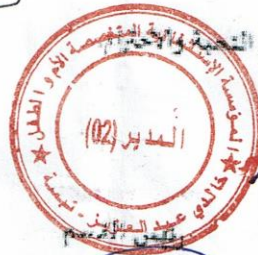 التحية والاحترام
المؤسسة الإستشفائية المتخصصة الأم و الطفل
المدير (02)
★ خالدي عبد العزيز - تبسة ★